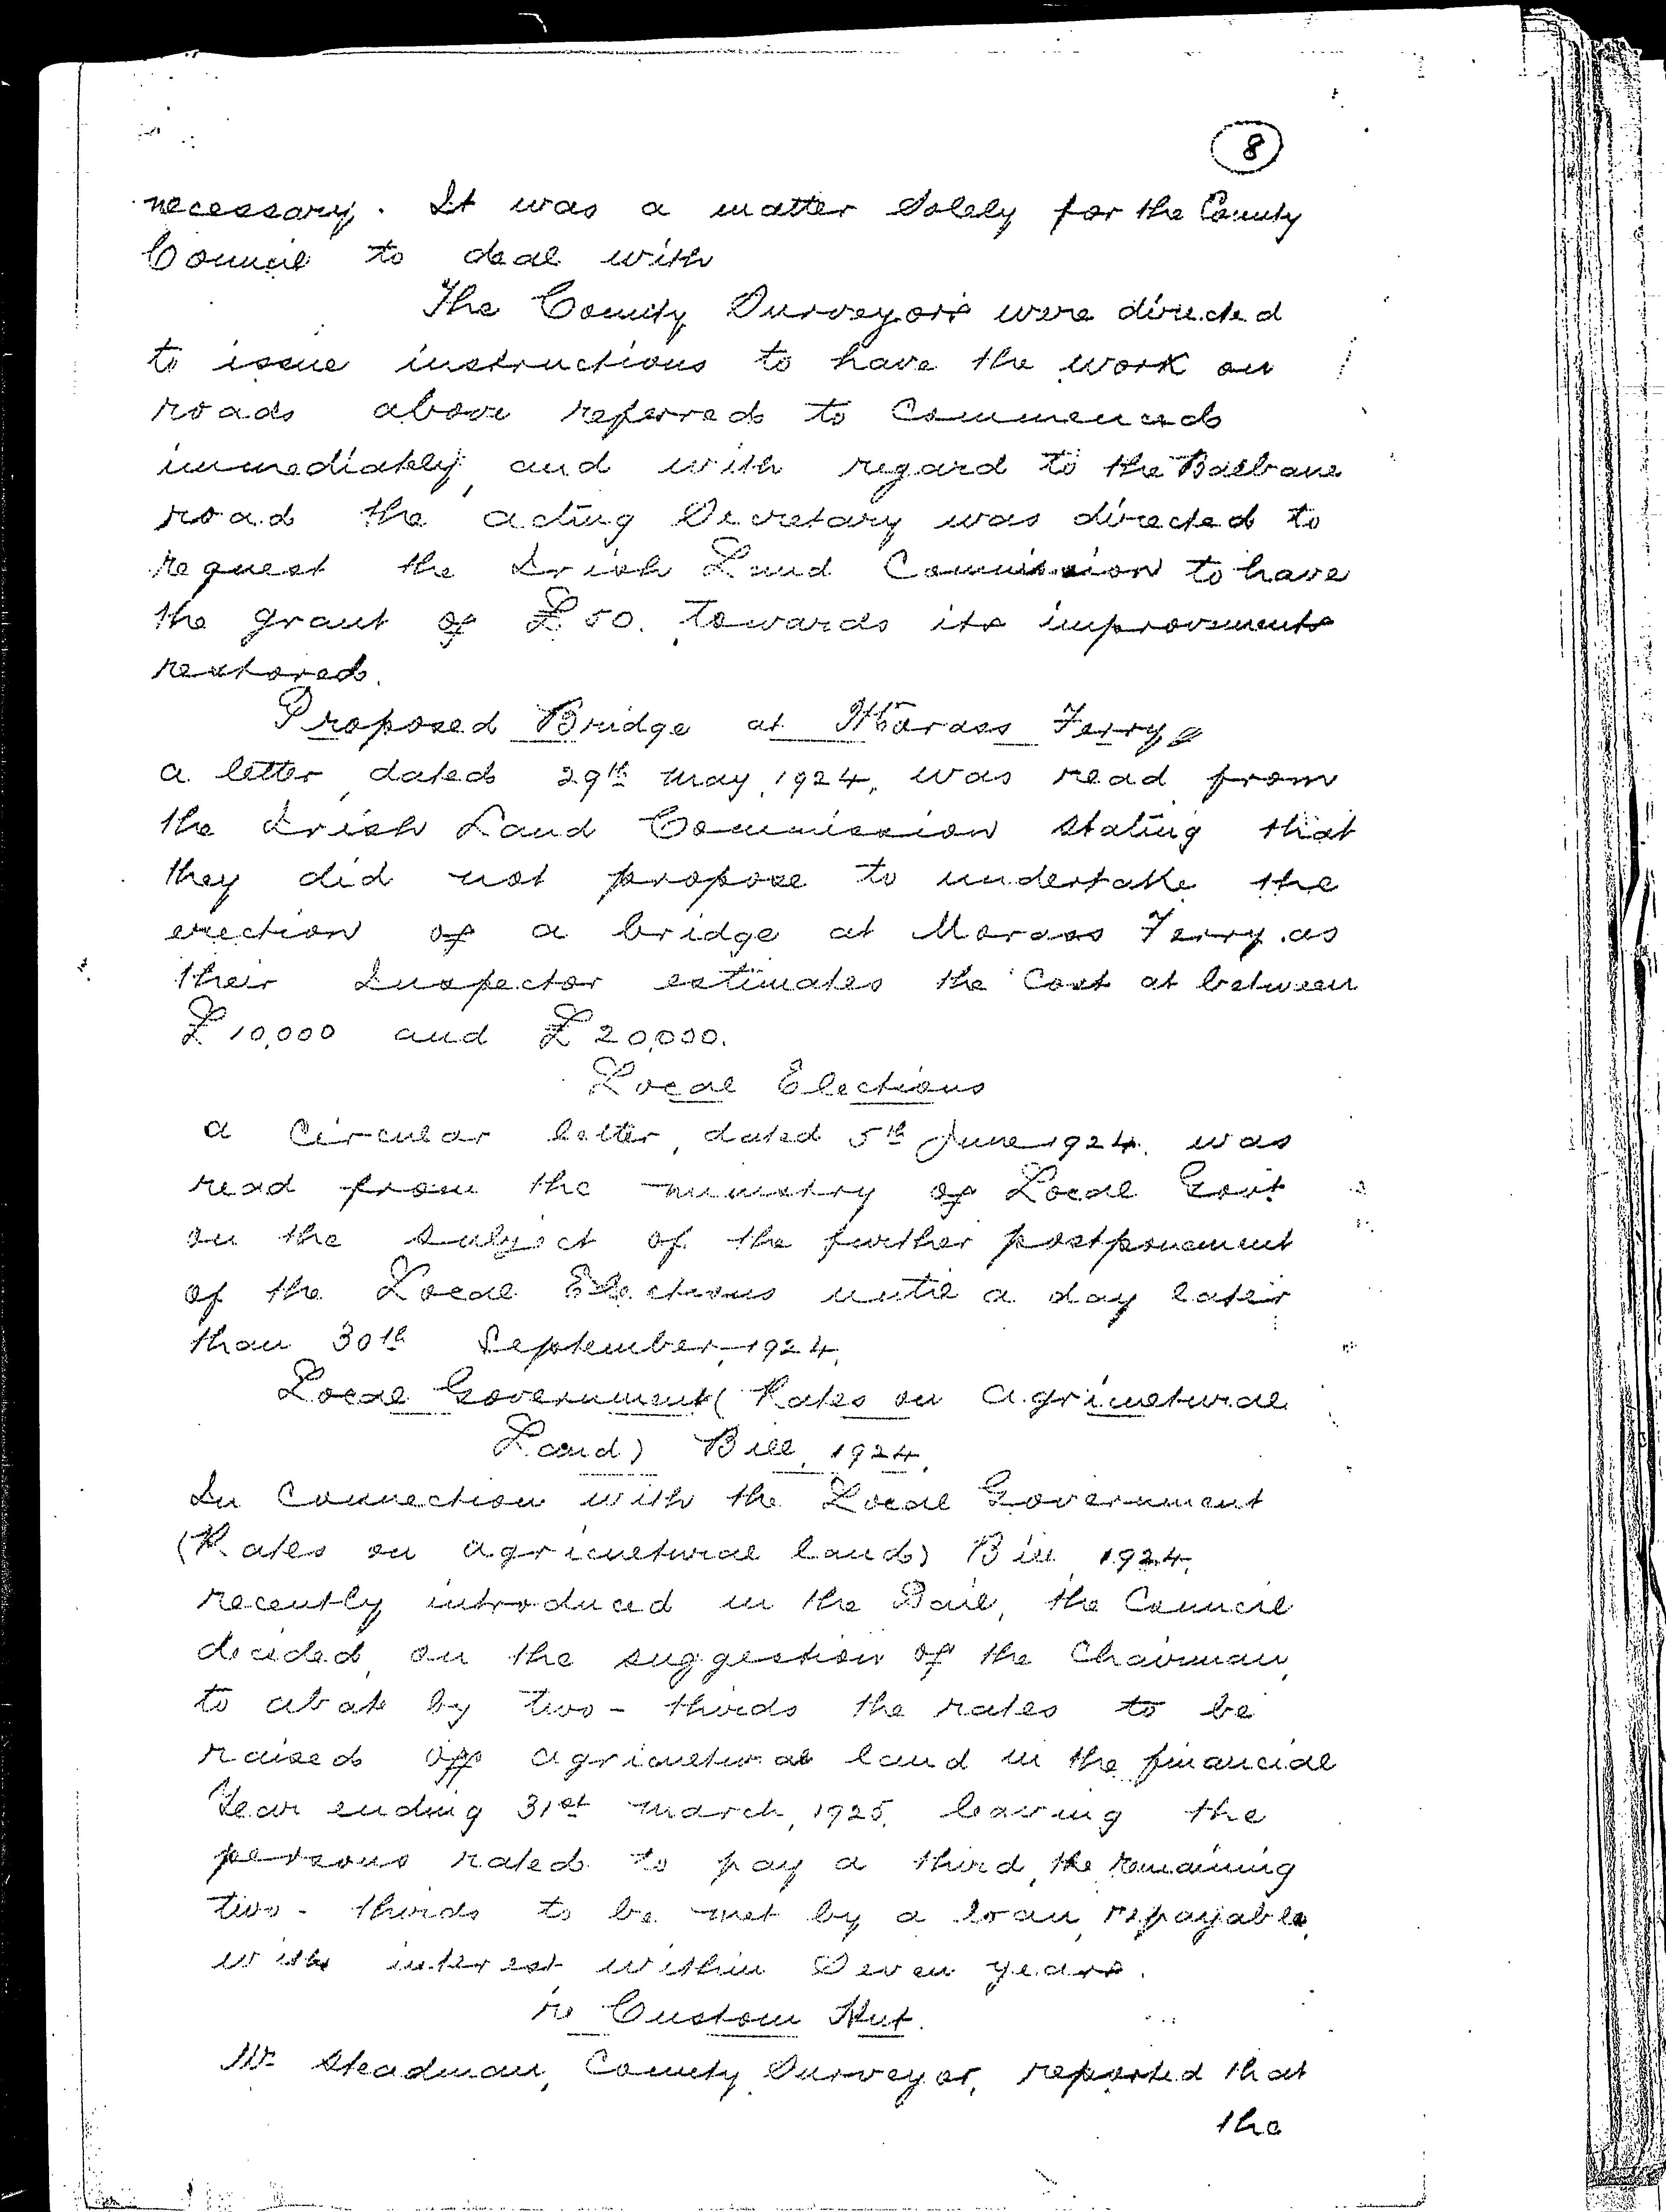 8
necessary. It was a matter solely for the County
Council to deal with
The County Surveyors were directed
to issue instructions to have the work on
roads above referred to commenced
immediately, and with regard to the Balbane
road the acting Secretary was directed to
request the Irish Land Commission to have
the grant of £50. towards its improvements
restored.
Proposed Bridge at Morass Ferry
a letter, dated 29th May, 1924, was read from
the Irish Land Commission stating that
they did not propose to undertake the
erection of a bridge at Morass Ferry as
their Inspector estimates the cost at between
£10,000 and £20,000.
Local Elections
a circular letter, dated 5th June 1924. was
read from the ministry of Local Govt
on the subject of the further postponement
of the Local Elections until a day later
than 30th September, 1924.
Local Government (Rates on agricultural
Land) Bill, 1924.
In connection with the Local Government
(Rates on agricultural land) Bill, 1924,
recently introduced in the Dail, the Council
decided, on the suggestion of the Chairman,
to abate by two-thirds the rates to be
raised off agricultural land in the financial
Year ending 31st March, 1925, leaving the
persons rated to pay a third, the remaining
two-thirds to be met by a loan, repayable,
with interest within Seven years.
re Custom Hut.
Mr Steadman, County Surveyor, reported that
the